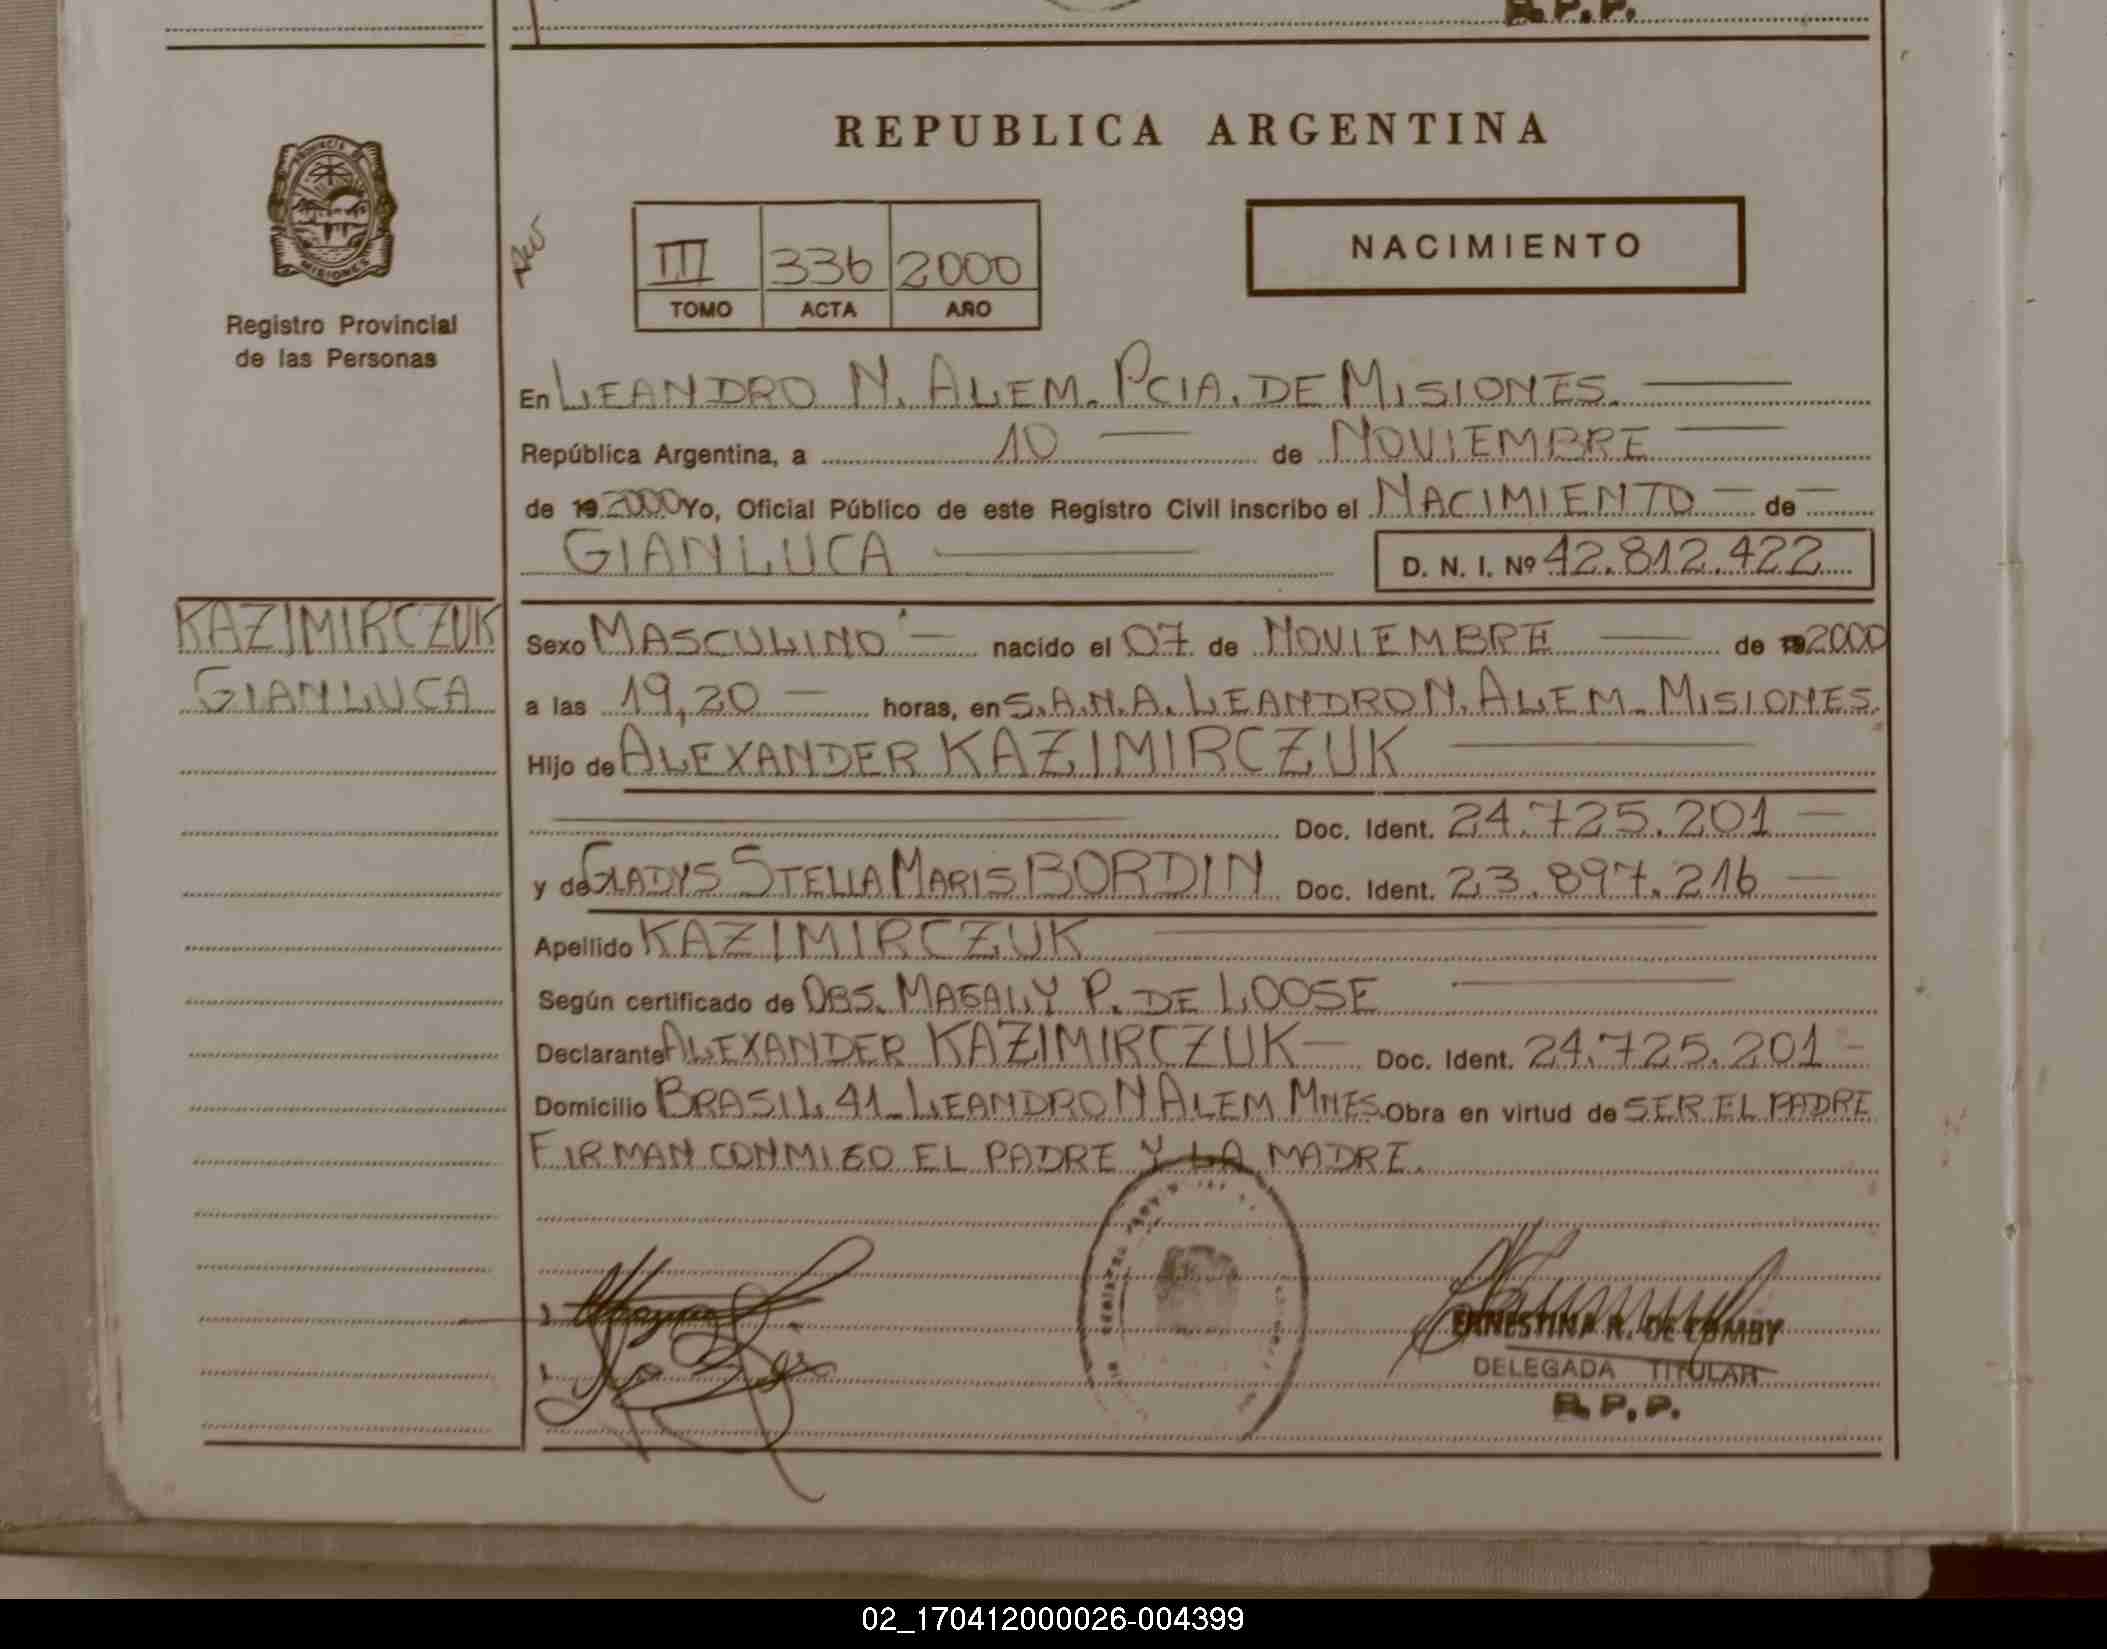 R.P.P.
REPUBLICA ARGENTINA
PROVINCIA DE
MISIONES
III 336 2000
TOMO ACTA AÑO
NACIMIENTO
Registro Provincial
de las Personas
En LEANDRO N. ALEM. PCIA. DE MISIONES.
República Argentina, a 10 de NOVIEMBRE
de 19 2000 Yo, Oficial Público de este Registro Civil inscribo el NACIMIENTO de
GIANLUCA D. N. I. Nº 42.812.422
KAZIMIRCZUK
GIANLUCA
Sexo MASCULINO nacido el 07 de NOVIEMBRE de 19 2000
a las 19,20 horas, en S.A.N.A. LEANDRO N. ALEM. MISIONES.
Hijo de ALEXANDER KAZIMIRCZUK
Doc. Ident. 24.725.201
y de GLADYS STELLA MARIS BORDIN Doc. Ident. 23.897.216
Apellido KAZIMIRCZUK
Según certificado de OBS. MAGALY P. DE LOOSE
Declarante ALEXANDER KAZIMIRCZUK Doc. Ident. 24.725.201
Domicilio BRASIL 41 LEANDRO N ALEM MNES. Obra en virtud de SER EL PADRE
FIRMAN CONMIGO EL PADRE Y LA MADRE.
ERNESTINA R. DE
DELEGADA TITULAR
R.P.P.
02_170412000026-004399